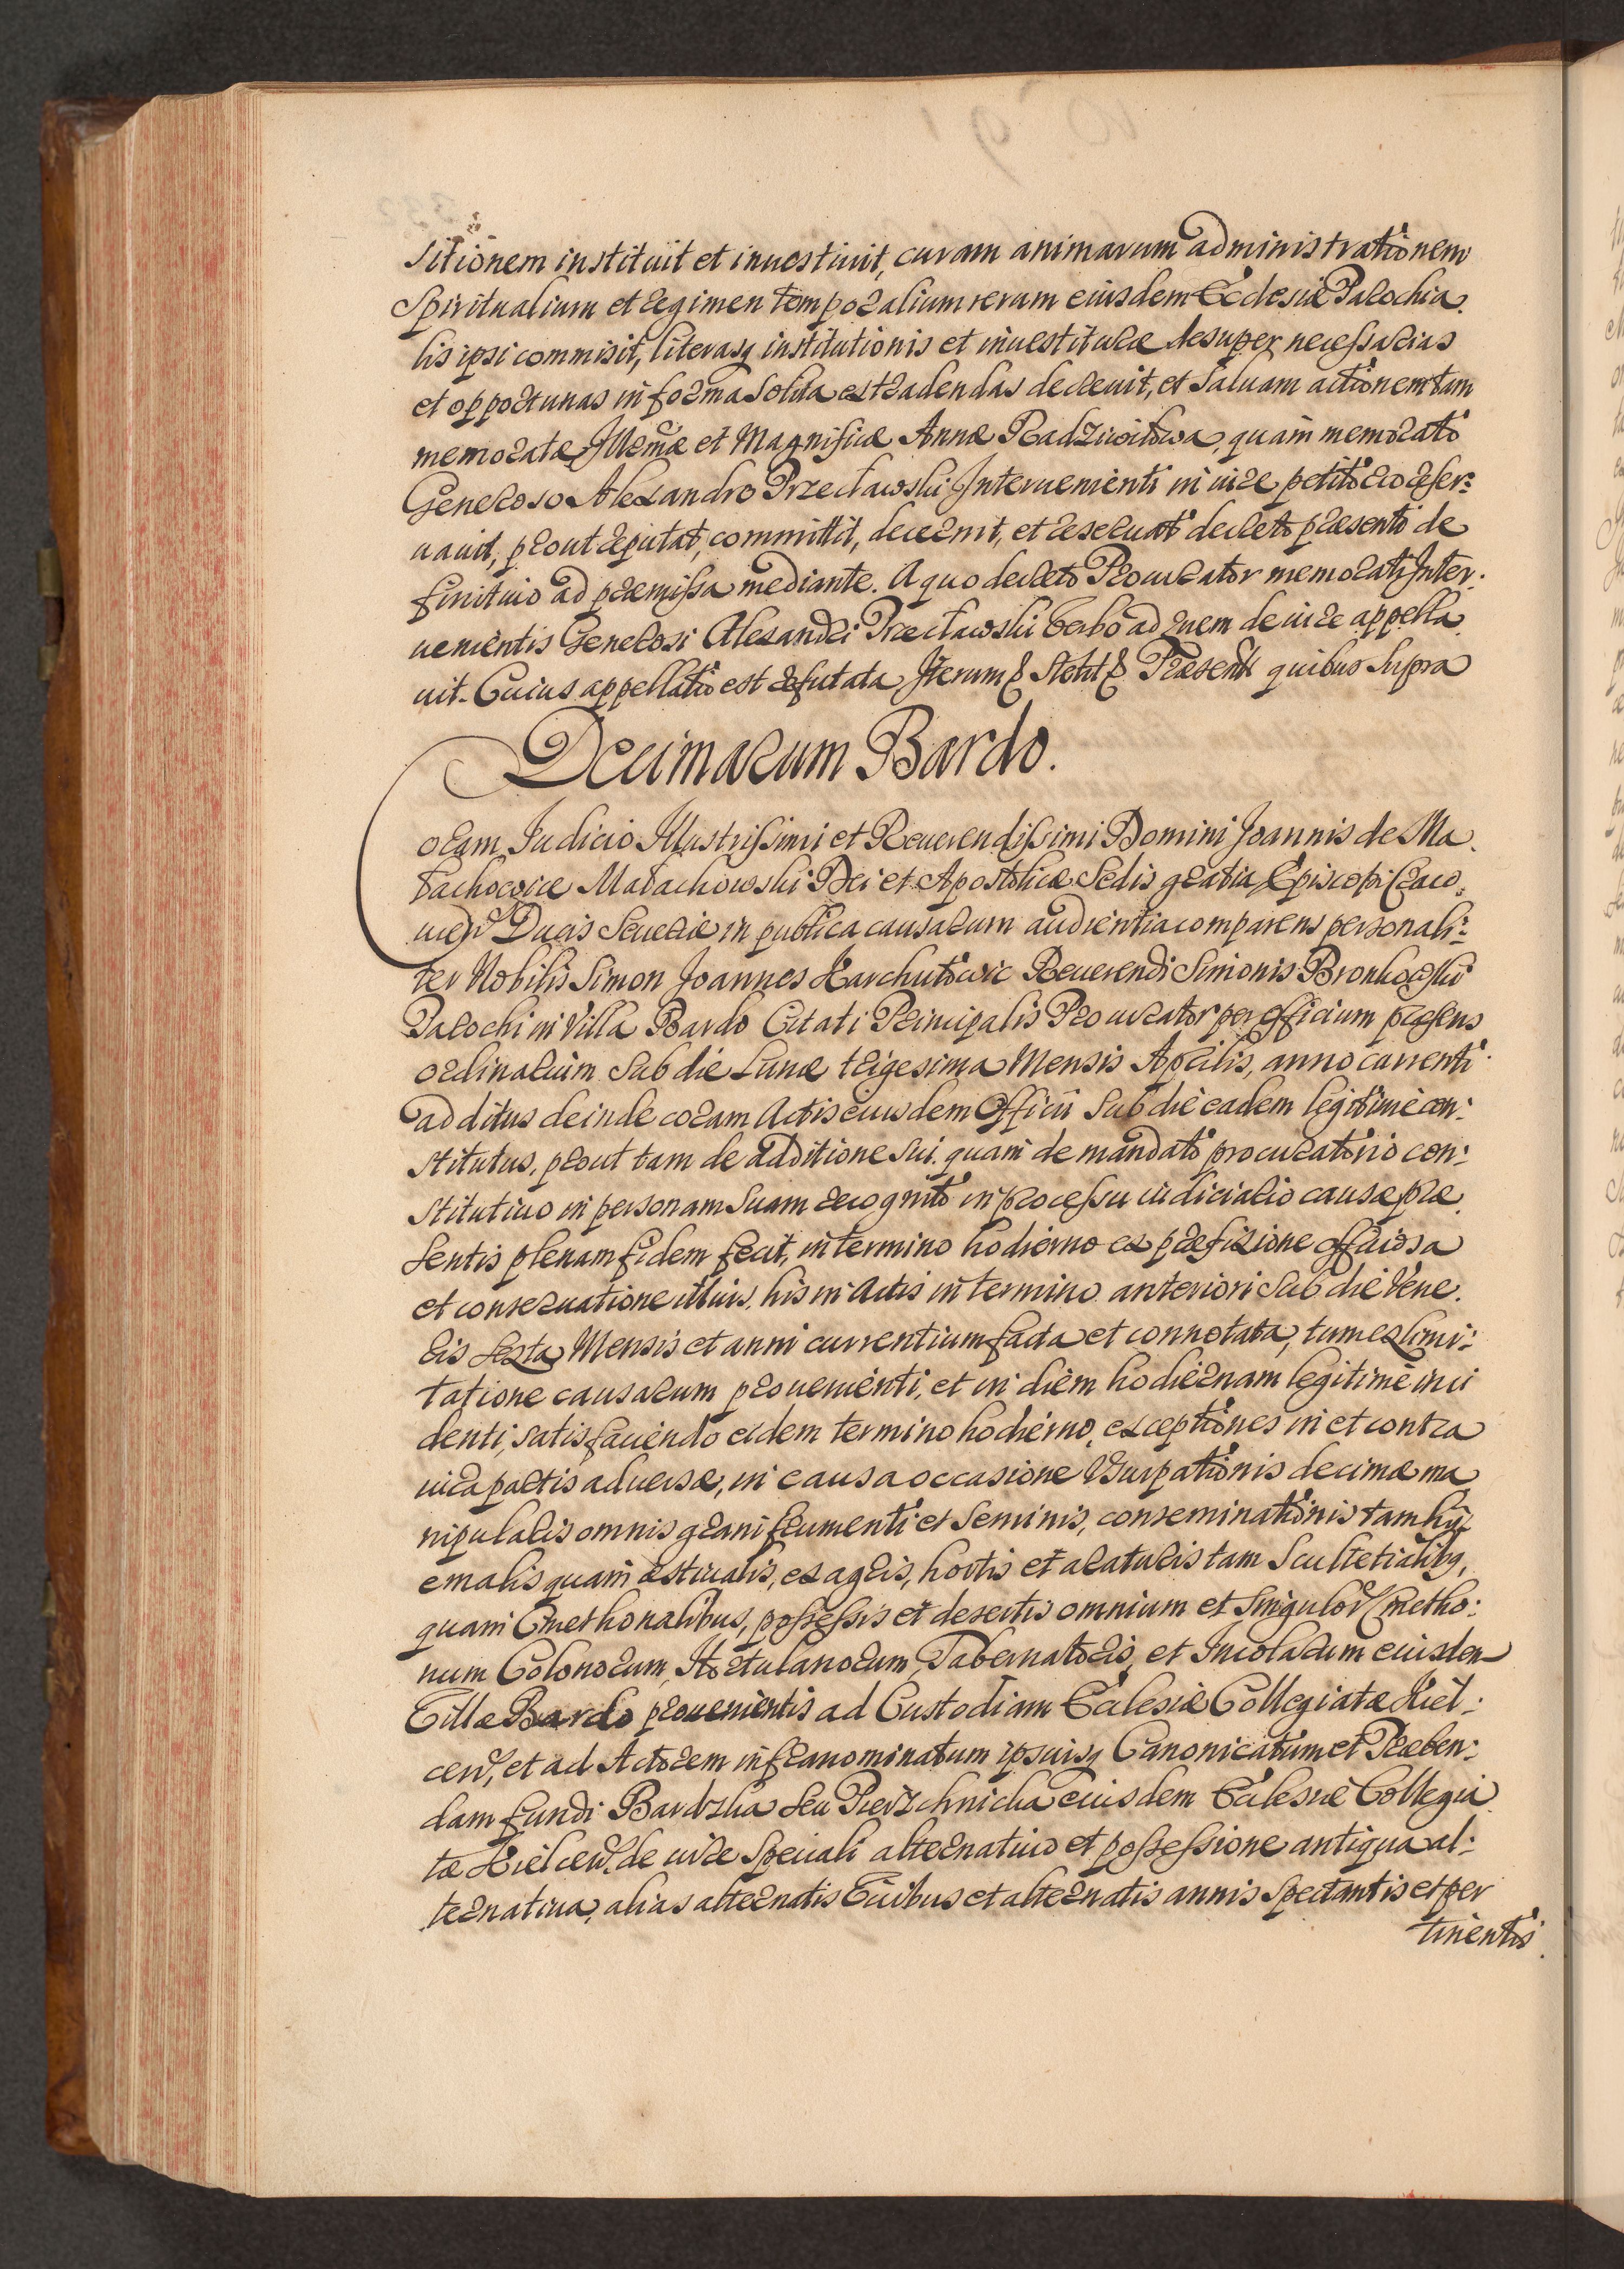 sitionem instituit et inuestiuit, curam animarum administrationem
Spiritualium et regimen temporalium rerum eiusdem Ecclesiæ Parochia.
lis ipsi commisit, literasq institutionis et inuestituræ desuper necessarias
et opportunas in forma solita extradendas decreuit, et saluam actionem tam
memoratæ Illrmæ et Magnificæ Annæ Radziwiłowa, quam memorato
Generoso Alexandro Przecławski Interuenienti in iure petitorio reser:
uauit, prout deputat, committit, decernit, et reseruat decreto præsenti de
finitiuo ad præmissa mediante. A quo decreto Procurator memorati Inter.
uenientis Generosi Alexandri Przecławski verbo ad quem de iure appella
uit. Cuius appellatio est refutata Iterum & Stetit & Præsent quibus supra
Decimarum Bardo.
Coram Iudicio Illustrissimi et Reuerendissimi Domini Joannis de Ma.
łachowice Małachowski Dei et Apostolicæ Sedis gratia Episcopi Craco,
uien Ducis Seueriæ in publica causarum audientia comparens personali:
ter Nobilis Simon Joannes Karchutowic Reuerendi Simonis Bronkowski
Parochi in Villa Bardo Citati Principalis Procurator per officium præsens
ordinarium sub die Lunæ trigesima Mensis Aprilis, anno currenti
additus deinde coram Actis eiusdem Officii sub die eadem legitimè con:
stitutus, prout tam de additione sui. quam de mandato procuratorio con:
stitutiuo in personam suam recognito in processu iudiciario causæ præ.
sentis plenam fidem fecit, in termino hodierno ex præfixione officiosa
et conseruatione illius, his in Actis in termino anteriori sub die Vene.
ris sexta Mensis et anni currentium facta et connotata, tum ex limi:
tatione causarum prouenienti, et in diem hodiernam legitimè inci
denti, satisfaciendo eidem termino hodierno, exceptiones in et contra
iura partis aduersæ, in causa occasione Vsurpationis decimæ ma
nipularis omnis grani frumenti et seminis, conseminationis tam hy
emalis quam æstiualis, ex agris, hortis et araturis tam Scultetialibq,
quam Cmethonalibus, possessis et desertis omnium et singulor Cmetho:
num Colonorum, Hortulanorum, Tabernatoris, et Incolarum eiusdem
Villæ Bardo prouenientis ad Custodiam Ecclesiæ Collegiatæ Kiel:
cen, et ad Actorem infranominatum ipsiusq Canonicatum et Præben:
dam fundi Bardzka seu Pierzchnicka eiusdem Ecclesiæ Collegia
tæ Kielcen. de iure speciali alternatiuo et possessione antiqua al:
ternatiua, alias alternatis vicibus et alternatis annis spectantis et per
tinentis